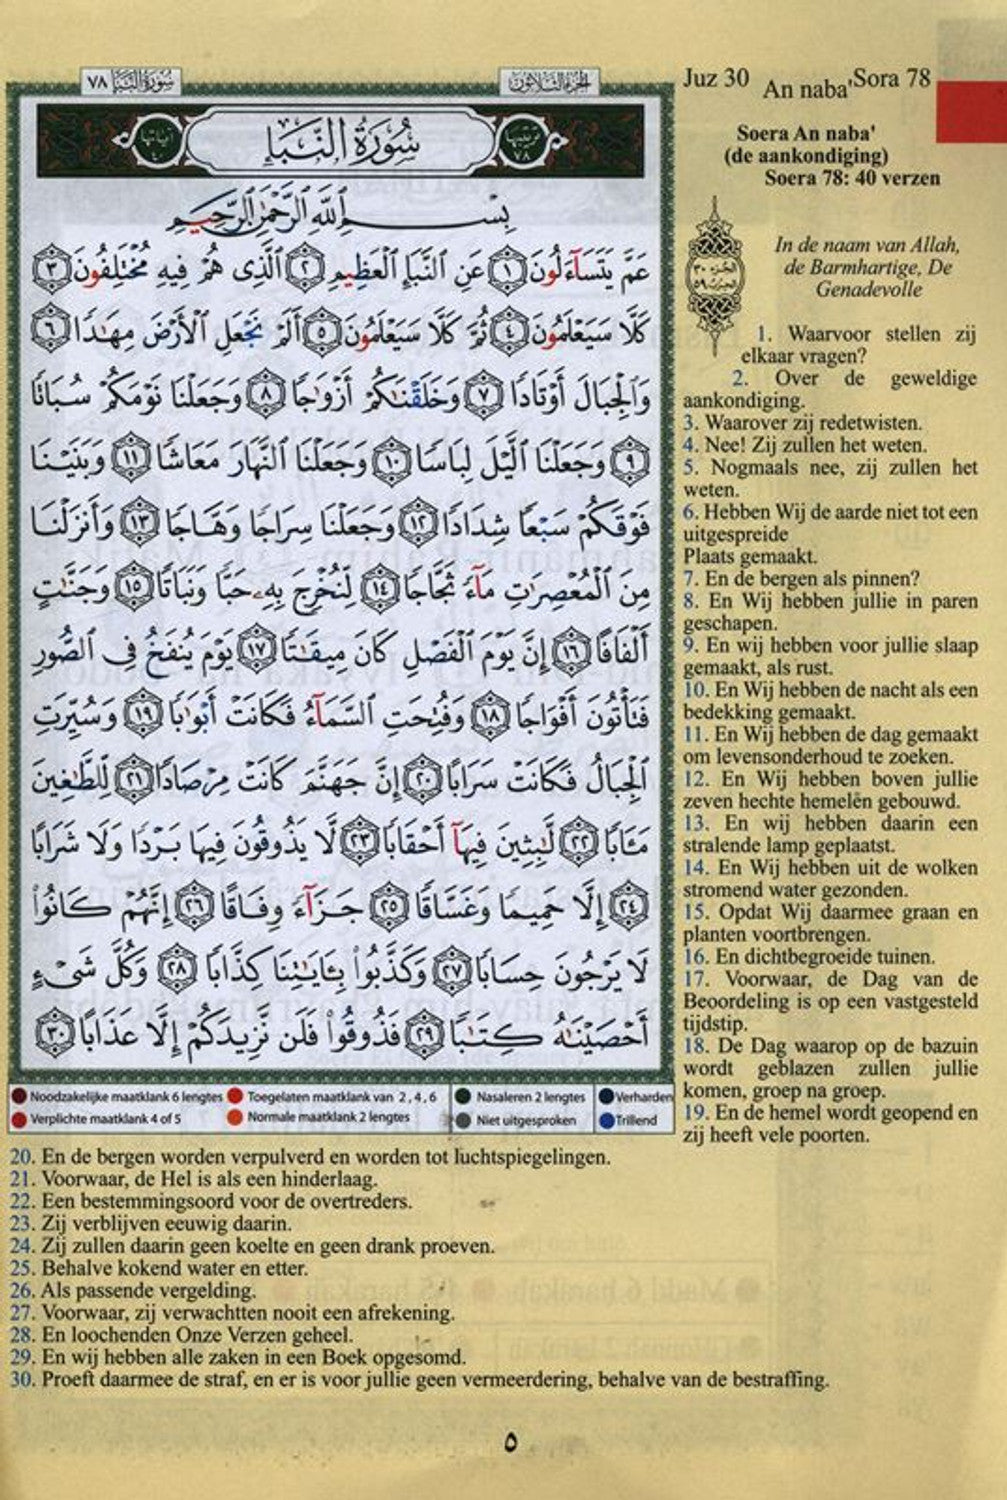 سورة النبإ ٧٨
الجزء الثلاثون
Juz 30 An naba' Sora 78
ترتيبها ٧٨
سُورَةُ النَّبَإِ
آياتها ٤٠
بِسْمِ ٱللَّهِ ٱلرَّحْمَٰنِ ٱلرَّحِيمِ
عَمَّ يَتَسَآءَلُونَ ١ عَنِ ٱلنَّبَإِ ٱلْعَظِيمِ ٢ ٱلَّذِى هُمْ فِيهِ مُخْتَلِفُونَ ٣
كَلَّا سَيَعْلَمُونَ ٤ ثُمَّ كَلَّا سَيَعْلَمُونَ ٥ أَلَمْ نَجْعَلِ ٱلْأَرْضَ مِهَٰدًا ٦
وَٱلْجِبَالَ أَوْتَادًا ٧ وَخَلَقْنَٰكُمْ أَزْوَٰجًا ٨ وَجَعَلْنَا نَوْمَكُمْ سُبَاتًا
٩ وَجَعَلْنَا ٱلَّيْلَ لِبَاسًا ١٠ وَجَعَلْنَا ٱلنَّهَارَ مَعَاشًا ١١ وَبَنَيْنَا
فَوْقَكُمْ سَبْعًا شِدَادًا ١٢ وَجَعَلْنَا سِرَاجًا وَهَّاجًا ١٣ وَأَنزَلْنَا
مِنَ ٱلْمُعْصِرَٰتِ مَآءً ثَجَّاجًا ١٤ لِّنُخْرِجَ بِهِۦ حَبًّا وَنَبَاتًا ١٥ وَجَنَّٰتٍ
أَلْفَافًا ١٦ إِنَّ يَوْمَ ٱلْفَصْلِ كَانَ مِيقَٰتًا ١٧ يَوْمَ يُنفَخُ فِى ٱلصُّورِ
فَتَأْتُونَ أَفْوَاجًا ١٨ وَفُتِحَتِ ٱلسَّمَآءُ فَكَانَتْ أَبْوَٰبًا ١٩ وَسُيِّرَتِ
ٱلْجِبَالُ فَكَانَتْ سَرَابًا ٢٠ إِنَّ جَهَنَّمَ كَانَتْ مِرْصَادًا ٢١ لِّلطَّٰغِينَ
مَـَٔابًا ٢٢ لَّٰبِثِينَ فِيهَآ أَحْقَابًا ٢٣ لَّا يَذُوقُونَ فِيهَا بَرْدًا وَلَا شَرَابًا
٢٤ إِلَّا حَمِيمًا وَغَسَّاقًا ٢٥ جَزَآءً وِفَاقًا ٢٦ إِنَّهُمْ كَانُوا۟
لَا يَرْجُونَ حِسَابًا ٢٧ وَكَذَّبُوا۟ بِـَٔايَٰتِنَا كِذَّابًا ٢٨ وَكُلَّ شَىْءٍ
أَحْصَيْنَٰهُ كِتَٰبًا ٢٩ فَذُوقُوا۟ فَلَن نَّزِيدَكُمْ إِلَّا عَذَابًا ٣٠
Noodzakelijke maatklank 6 lengtes Toegelaten maatklank van 2, 4, 6 Nasaleren 2 lengtes Verharden
Verplichte maatklank 4 of 5 Normale maatklank 2 lengtes Niet uitgesproken Trillend
Soera An naba'
(de aankondiging)
Soera 78: 40 verzen
الجزء ٣٠
الحزب ٥٩
In de naam van Allah,
de Barmhartige, De
Genadevolle
1. Waarvoor stellen zij
elkaar vragen?
2. Over de geweldige
aankondiging.
3. Waarover zij redetwisten.
4. Nee! Zij zullen het weten.
5. Nogmaals nee, zij zullen het
weten.
6. Hebben Wij de aarde niet tot een
uitgespreide
Plaats gemaakt.
7. En de bergen als pinnen?
8. En Wij hebben jullie in paren
geschapen.
9. En wij hebben voor jullie slaap
gemaakt, als rust.
10. En Wij hebben de nacht als een
bedekking gemaakt.
11. En Wij hebben de dag gemaakt
om levensonderhoud te zoeken.
12. En Wij hebben boven jullie
zeven hechte hemelen gebouwd.
13. En wij hebben daarin een
stralende lamp geplaatst.
14. En Wij hebben uit de wolken
stromend water gezonden.
15. Opdat Wij daarmee graan en
planten voortbrengen.
16. En dichtbegroeide tuinen.
17. Voorwaar, de Dag van de
Beoordeling is op een vastgesteld
tijdstip.
18. De Dag waarop op de bazuin
wordt geblazen zullen jullie
komen, groep na groep.
19. En de hemel wordt geopend en
zij heeft vele poorten.
20. En de bergen worden verpulverd en worden tot luchtspiegelingen.
21. Voorwaar, de Hel is als een hinderlaag.
22. Een bestemmingsoord voor de overtreders.
23. Zij verblijven eeuwig daarin.
24. Zij zullen daarin geen koelte en geen drank proeven.
25. Behalve kokend water en etter.
26. Als passende vergelding.
27. Voorwaar, zij verwachtten nooit een afrekening.
28. En loochenden Onze Verzen geheel.
29. En wij hebben alle zaken in een Boek opgesomd.
30. Proeft daarmee de straf, en er is voor jullie geen vermeerdering, behalve van de bestraffing.
٥